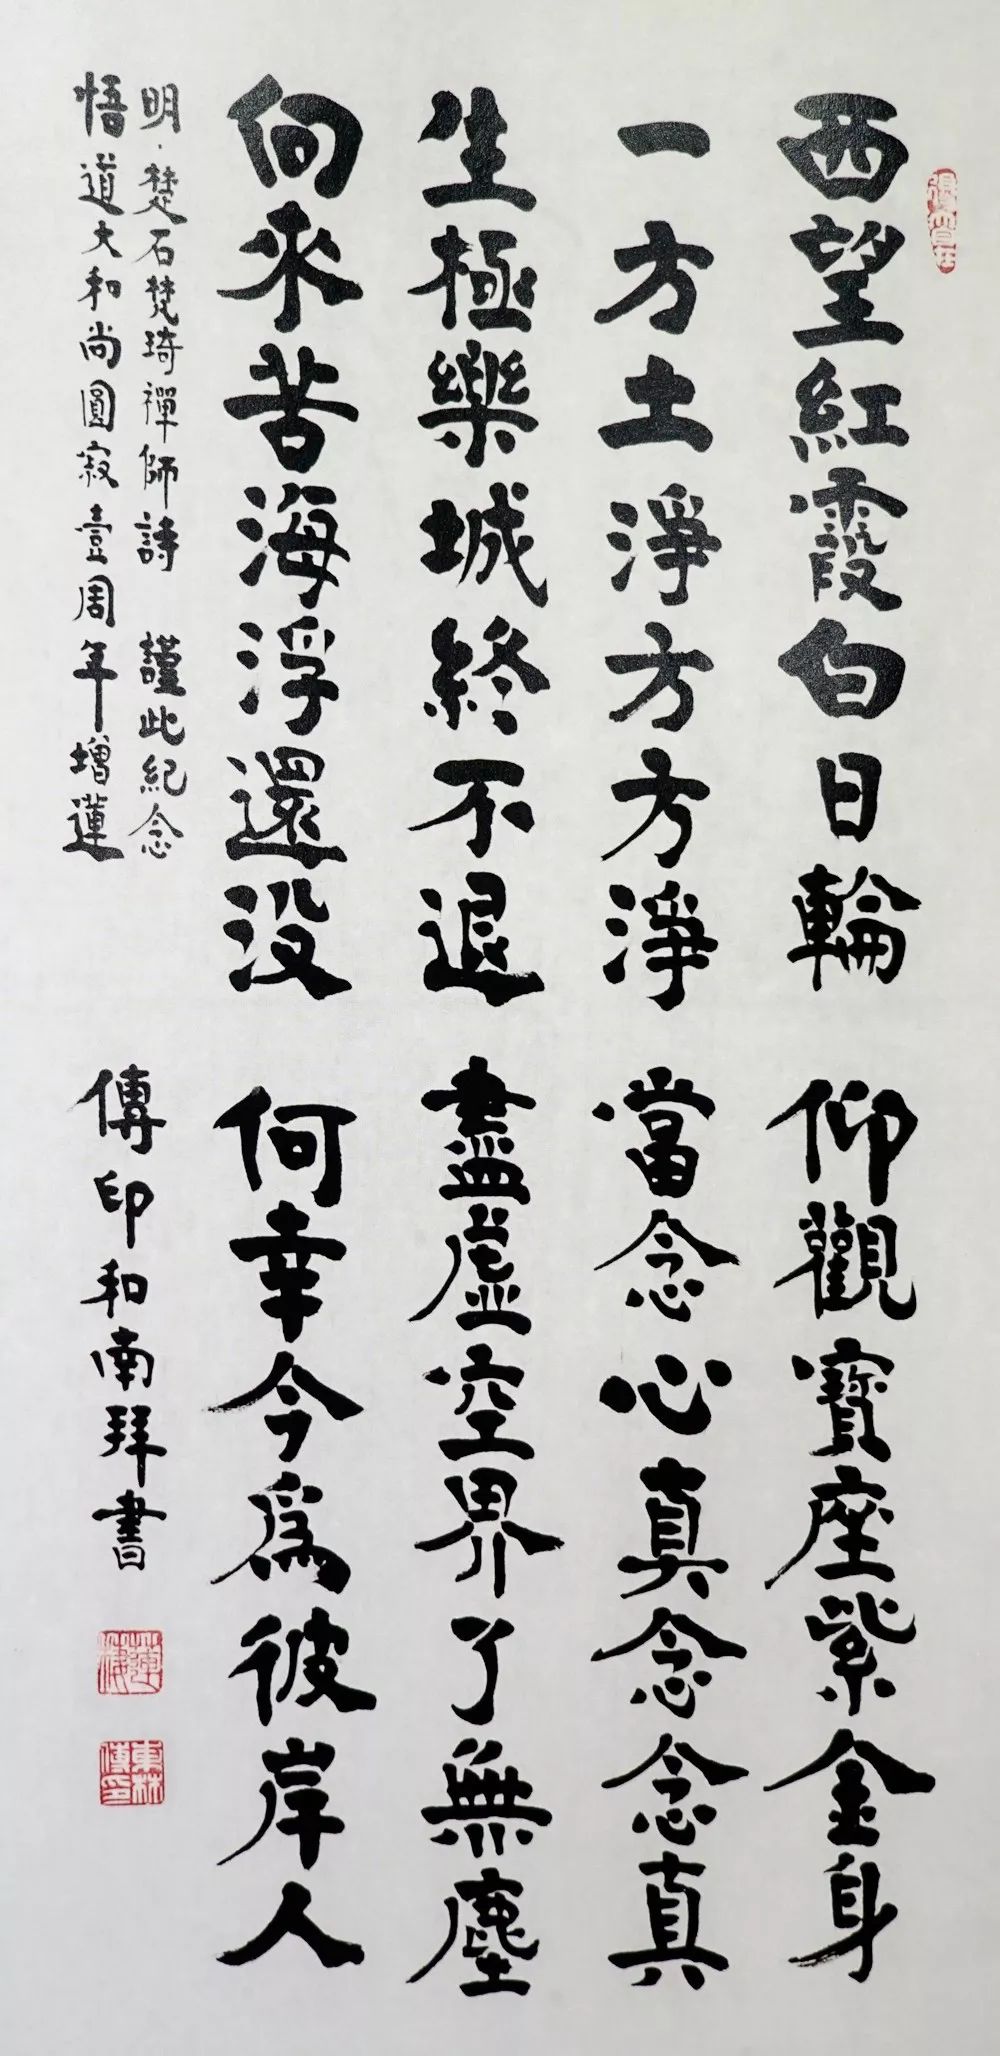 西望紅霞白日輪 仰觀寶座紫金身
一方土淨方方淨 當念心真念念真
生極樂城終不退 盡虛空界了無塵
向來苦海浮還没 何幸今為彼岸人
明·楚石梵琦禪師詩 謹此紀念
悟道大和尚圓寂壹周年增蓮
傳印和南拜書
東林傳印